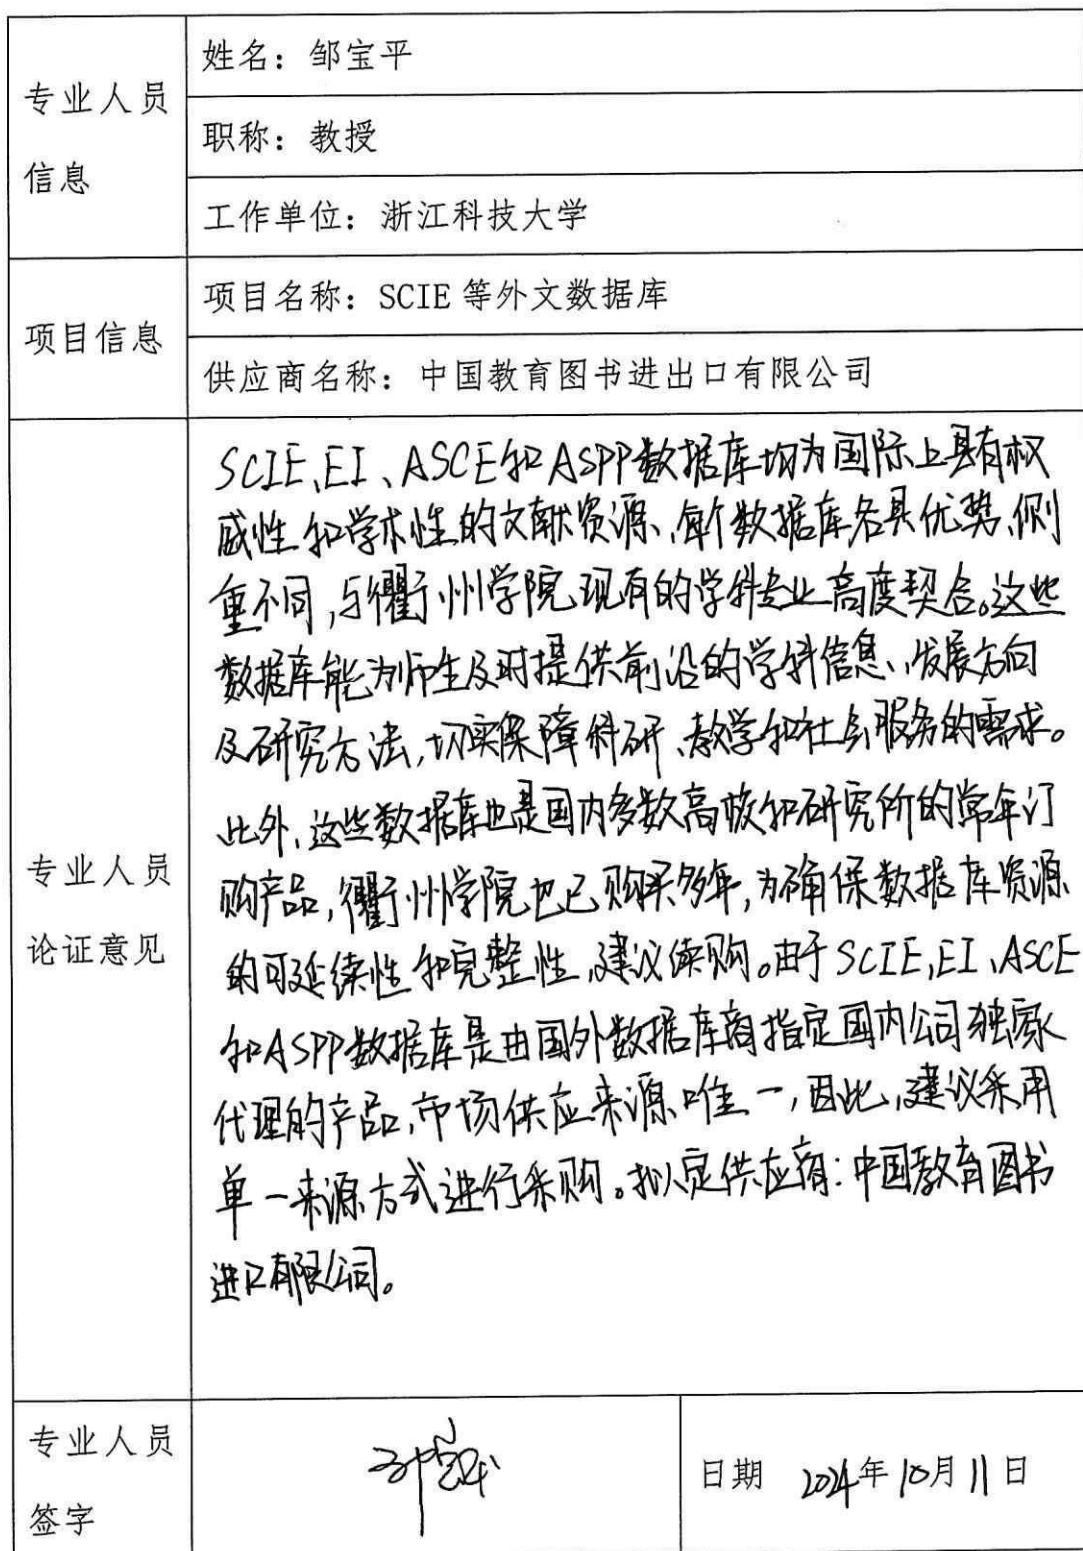 专业人员
信息
姓名：邹宝平
职称：教授
工作单位：浙江科技大学
项目信息
项目名称：SCIE 等外文数据库
供应商名称：中国教育图书进出口有限公司
专业人员
论证意见
SCIE、EI、ASCE和ASPP数据库均为国际上具有权
威性和学术性的文献资源、每个数据库各具优势、侧
重不同，与衢州学院现有的学科专业高度契合。这些
数据库能为师生及时提供前沿的学科信息、发展方向
及研究方法，切实保障科研、教学和社会服务的需求。
此外，这些数据库也是国内多数高校和研究所的常年订
购产品，衢州学院也已购买多年，为确保数据库资源
的可延续性和完整性，建议续购。由于SCIE、EI、ASCE
和ASPP数据库是由国外数据库商指定国内公司独家
代理的产品，市场供应来源唯一，因此，建议采用
单一来源方式进行采购。拟定供应商：中国教育图书
进口有限公司。
专业人员
签字
邹宝平
日期 2024年10月11日